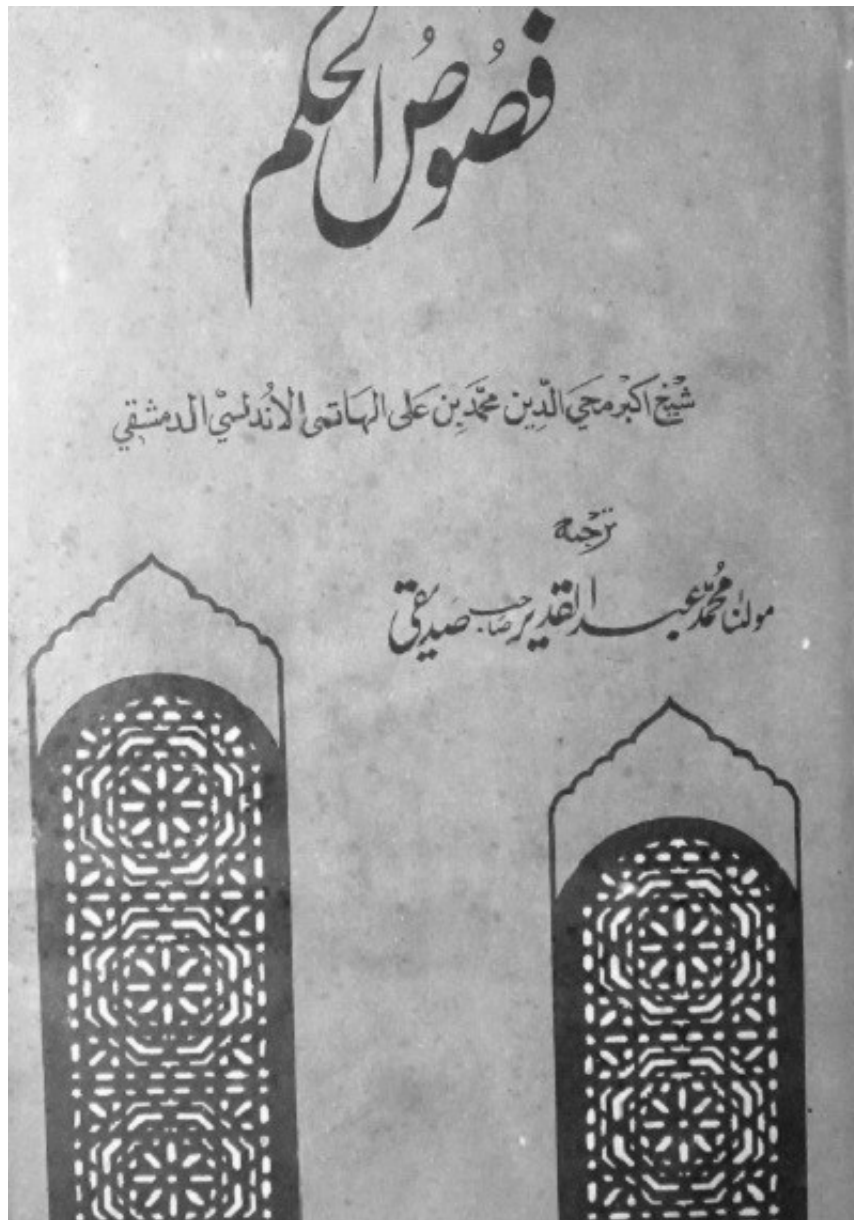 فصُوصُ الحکم
شیْخ اکبْر محي الدِّین محمَّد بِن عَلی الهَاتمی الأندلسيْ الدمشقي
ترجْمہ
مولٰنا محُمَّد عبد القدیر صاحب صدیقی